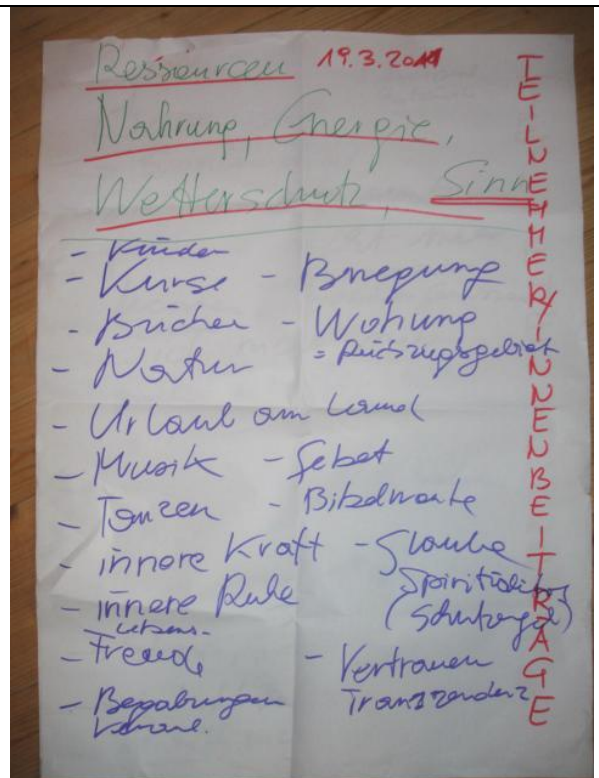 Ressourcen 19.3.2011
Nahrung, Energie,
Wetterschutz, Sinn
- Kinder
- Kurse - Bewegung
- Bücher - Wohnung
- Natur = Rückzugsgebiet
- Urlaub am Land
- Musik - Gebet
- Tanzen - Bibelworte
- innere Kraft - Glaube
- innere Ruhe Spiritualität
(Schutzengel)
Lebens-
- Freude - Vertrauen
Transzendenz
- Begabungen
TEILNEHMER/INNENBEITRÄGE